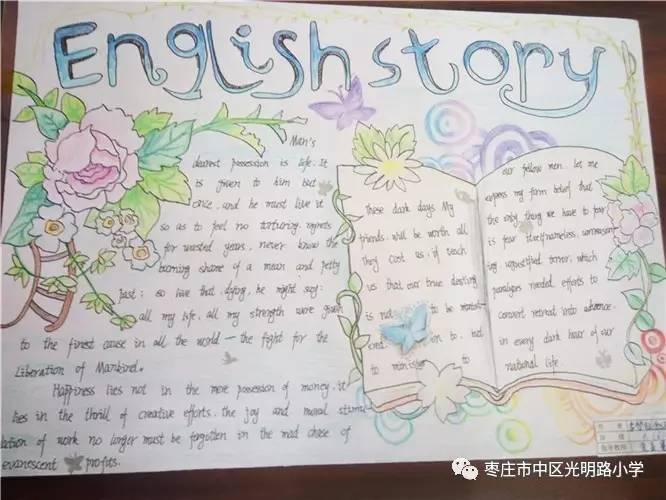 English story
Man's
dearest possession is life. It
is given to him but
once, and he must live it
so as to feel no torturing regrets
for wasted years, never know the
burning shame of a mean and petty
past; so live that, dying, he might say:
all my life, all my strength were given
to the finest cause in all the world — the fight for the
Liberation of Mankind.
Happiness lies not in the mere possession of money. it
lies in the thrill of creative efforts. the joy and moral stimu
lation of work no longer must be forgotten in the mad chase of
evanescent profits.
These dark days My
friends. will be worth all
they cost us, if teach
us that our true destiny
is not to be
to. but
to minister to
our fellow men. let me
express my firm belief that
the only thing we have to fear
is fear itself nameless,
terror, which
needed efforts to
convert retreat into advance.
in every dark hour of our
national life.
枣庄市中区光明路小学